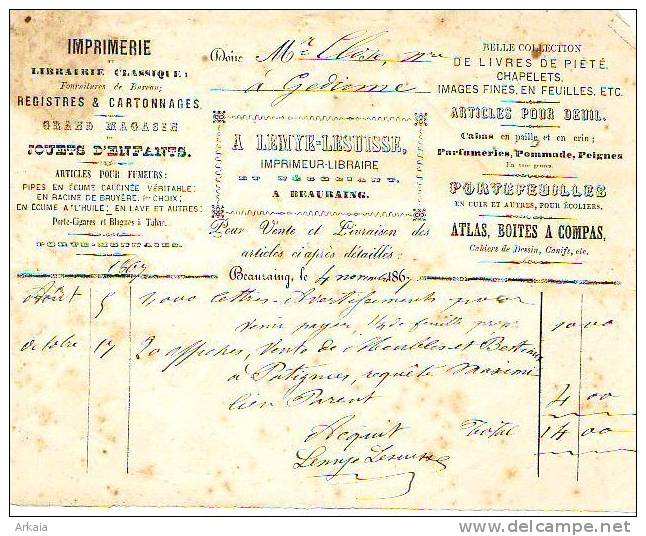 IMPRIMERIE
ET
LIBRAIRIE CLASSIQUE;
Fournitures de Bureau;
REGISTRES & CARTONNAGES.
GRAND MAGASIN
DE
JOUETS D'ENFANTS.
ARTICLES POUR FUMEURS:
PIPES EN ÉCUME CALCINÉE VÉRITABLE;
EN RACINE DE BRUYÈRE, 1er CHOIX;
EN ÉCUME A L'HUILE; EN LAVE ET AUTRES;
Porte-Cigares et Blagues à Tabac.
PORTE-MONNAIES.
Doit Mr
à Gedinne
A LEMYE-LESUISSE,
IMPRIMEUR-LIBRAIRE
ET NÉGOCIANT,
A BEAURAING.
BELLE COLLECTION
DE LIVRES DE PIÉTÉ,
CHAPELETS,
IMAGES FINES, EN FEUILLES, ETC.
ARTICLES POUR DEUIL.
Cabas en paille et en crin;
Parfumeries, Pommade, Peignes
En tous genres.
PORTEFEUILLES
EN CUIR ET AUTRES, POUR ÉCOLIERS.
ATLAS, BOITES A COMPAS,
Cahiers de Dessin, Canifs, etc.
Pour Vente et Livraison des
articles ci après détaillés:
Beauraing, le 4 novembre 1867
1867
Août 5 1,000 lettres-Avertissements pour
venir payer, 1/4 de feuille 10 00
octobre 17 20 affiches, Vente de Meubles et Bestiaux
à Patignies, requête Maximi
lien Parent 4 00
Acquit Total 14 00
Lemye Lesuisse
Arkaia
delcampe.net